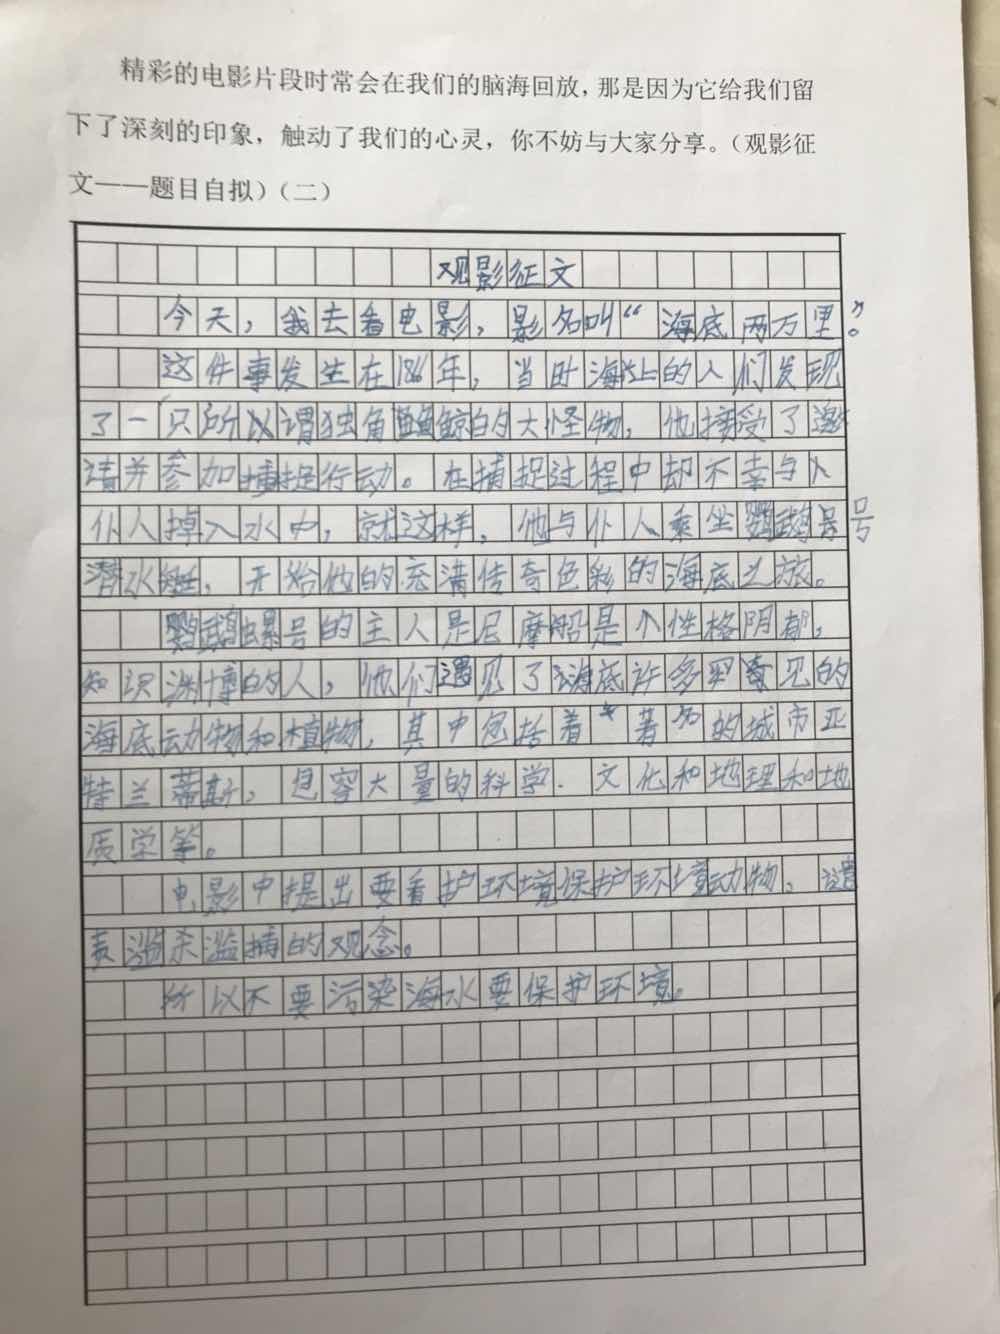 精彩的电影片段时常会在我们的脑海回放，那是因为它给我们留
下了深刻的印象，触动了我们的心灵，你不妨与大家分享。（观影征
文——题目自拟）（二）
观影征文
今天，我去看电影，影名叫“海底两万里”。
这件事发生在1866年，当时海上的人们发现
了一只所以谓独角鲸的大怪物，他接受了邀
请并参加捕捉行动。在捕捉过程中却不幸与
仆人掉入水中，就这样，他与仆人乘坐鹦鹉号
潜水艇，开始他的充满传奇色彩的海底之旅。
鹦鹉螺号的主人是尼摩船是个性格阴郁，
知识渊博的人，他们遇见了海底许多罕见的
海底动物和植物，其中包括着著名的城市亚
特兰蒂斯，包容大量的科学．文化和地理和地
质学等。
电影中提出要看护环境保护环境动物，谴
责滥杀滥捕的观念。
所以不要污染海水要保护环境。